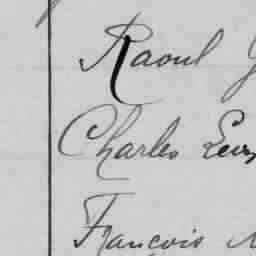 Raoul
Charles
François